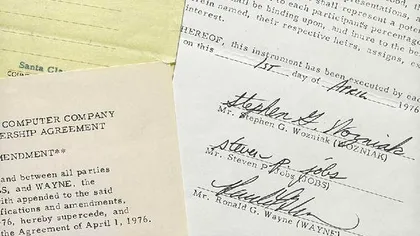 Santa Cla
COMPUTER COMPANY
ERSHIP AGREEMENT
MENDMENT**
and between all parties
S, and WAYNE, the
with appended all said
fications and amendments,
76, hereby supercede, and
the Agreement of April 1, 1976.
shall represent a poten
to each participants percentage
shall be binding upon, and inure to the be
rein named, their respective heirs, assigns, ex
interest.
HEREOF, this instrument has been executed by each
on this 1st day of April 1976
Stephen G. Wozniak
Mr. Stephen G. Wozniak (WOZNIAK)
steven p. jobs
Mr. Steven P. Jobs (JOBS)
Mr. Ronald G. Wayne (WAYNE)